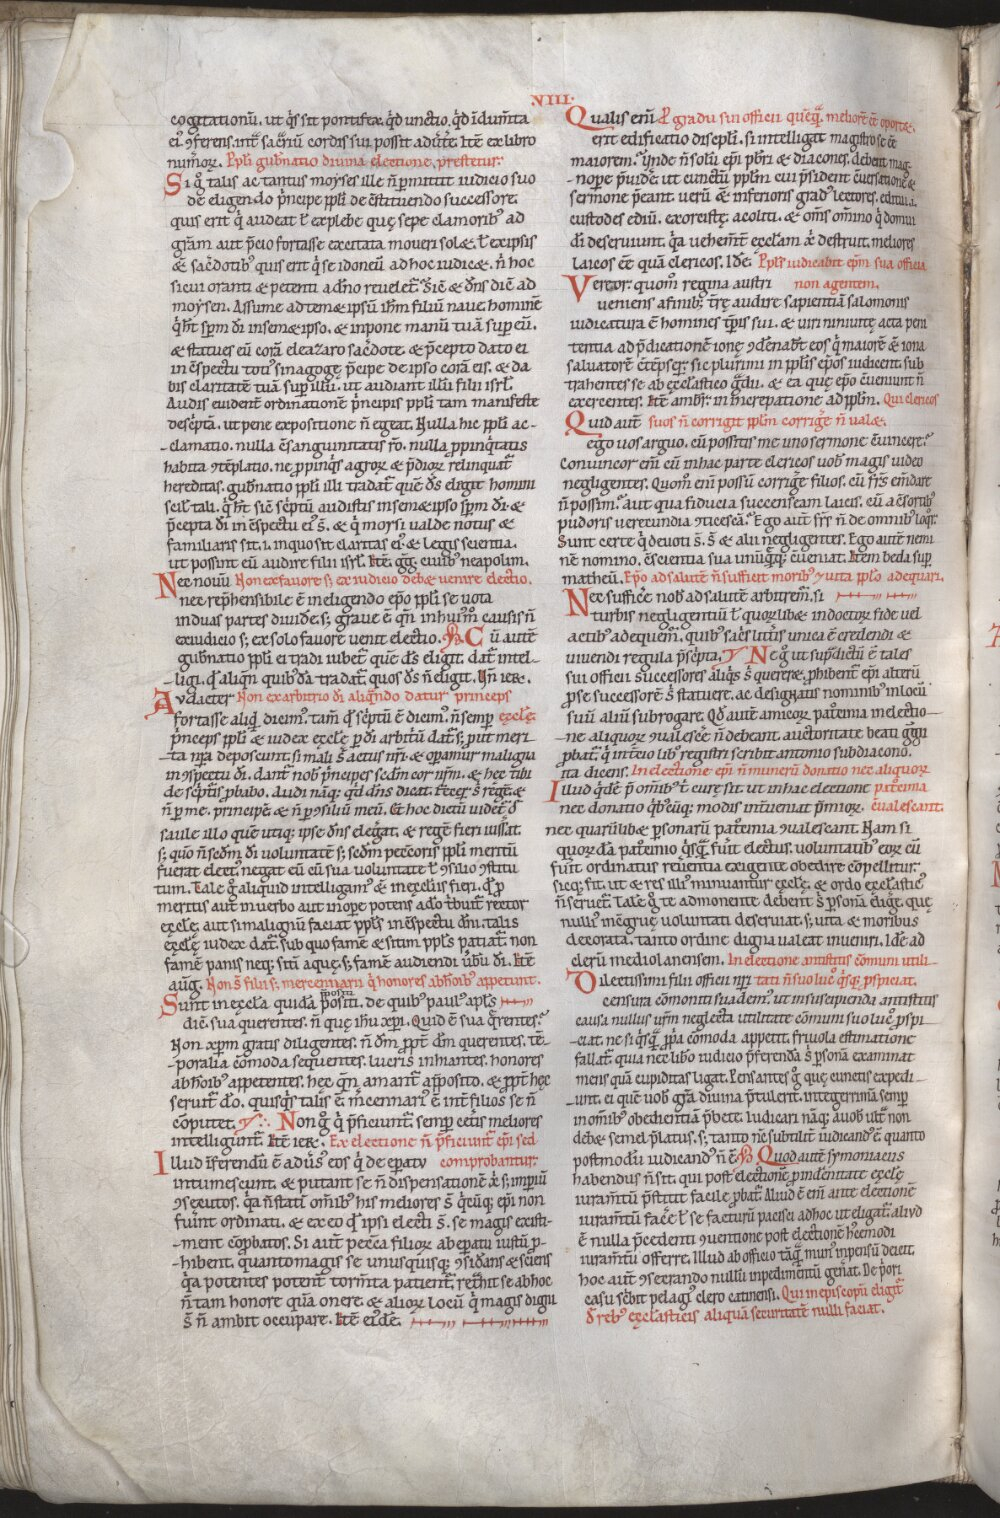 VIII.
cogitationū. ut q̇s sit pontifex. q̇d unctio. q̇d īdum̄ta
ei᾽ ꝯferens. int̄ sac̄riū cordis sui possit adūt̄e. Itē ex libro
num̄oꝝ. P̄pl̄i gub̄natio diuina electione p̄restetur.
Si g̊ talis ac tantus moyses ille n̄ p̄mittit iudicio suo
de eligendo p̄ncipe pp̄li de c̄stituendo successore.
quis erit q̇ audeat ł ex plebe quę sepe clamorib᾽ ad
gr̄am aut p̄cio fortasse excitata moueri solet. ł ex ipsis
et sac̄dotib᾽ quis erit q̇ se idoneū ad hoc iudicet. n̄ hoc
sicui oranti et petenti a dn̄o reuelet᷑. Sic̄ et dn̄s dic̄ ad
moysen. Assume ad temetipsū ih̄m filiū naue. hominē
q̇ ħt sp̄m dī in semetipso. et inpone manū tuā sup eū.
et statues eū corā eleazaro sac̄dote. et p̄cepto dato ei
in c̄spectu toti᾽ sinagogę p̄cipe de ipso corā eis. et da
bis claritatē tuā sup̄ illū. ut audiant illū filii isrł.
Audis euident̄ ordinationē p̄ncipis pp̄li tam manifeste
desc̄pta. ut pene expositione n̄ egeat. Nulla hic pp̄li ac-
clamatio. nulla c̄sanguinitatis ro. nulla ꝓpinq̇tatis
habita ꝯtēplatio. ne ꝓpinq̇s agroꝝ et p̄dioꝝ relinquat᷑
hereditas. gub̄natio pp̄li illi tradat᷑ quē dꝰs elegit homini
scil̄ tali. q̇ ħt sic̄ sc̄ptū audistis in semetipso sp̄m dī. et
p̄cepta dī in c̄spectu ei᾽ s̄. et q̇ moysi ualde notus et
familiaris sit. i. in quo sit claritas ei᾽. et legis scientia.
ut possint eū audire filii isrł. Itē. gḡ. ciuib᾽ neapolim.
Nec nouū Non ex fauore s; ex iudicio debet uenire electio.
nec rep̄hensibile ē in eligendo epo pp̄li se uota
in duas partes diuidere. s; graue ē qn̄ in hui᾽mōi causis n̄
ex iudicio s; ex solo fauore uenit electio. Cū autē
gub̄natio pp̄li ei tradi iubet᷑ quē dꝰs eligit. dat᷑ intel-
ligi. qđ aliqn̄ quib᾽dā tradat᷑ quos dꝰs n̄ eligit. Un̄ ier̄.
Audacter Non ex arbitrio dī aliq̄ndo datur princeps
fortasse aliqđ dicim᾽. tam̄ qđ sc̄ptū ē dicim᾽. n̄ semp ęcclę.
p̄nceps pp̄li et iudex ęcclę p dī arbitriū dat᷑. s; put meri-
ta nr̄a deposcunt. si mali s̄ actus nr̄i. et opamur maligna
in ꝯspectu dī. dant᷑ nob̄ p̄ncipes sedm̄ cor nr̄m. et hec tibi
de sc̄ptis ꝓbabo. Audi nāq; qđ dn̄s dicat. fecer̄ s̄ rege. et
n̄ p me. principē et n̄ p ꝯsiliū meū. Et hoc dictū uidet᷑ đ
saule illo quē utiq; ipse dn̄s elegat. et regē fieri iussat.
s; qūo n̄ sedm̄ dī uoluntatē s; sedm̄ pec̄coris pp̄li meritū
fuerat elect᾽. negat eū cū sua uoluntate ł ꝯsilio ꝯstitu
tum. Tale g̊ aliquid intelligam᾽ et in ęcclīis fieri. qđ p
meritis aut in uerbo aut in ope potens a dō tb̄uit᷑ rector
ęcclę. aut si malignū faciat pp̄ls in c̄spectu dn̄i. talis
ęcclę iudex dat᷑. sub quo famē et sitim pp̄ls patiat᷑. non
famē panis neq; sitī aquę. s; famē audiendi ūbū dī. Itē
aūg. Non s̄ filii s; mercennarii q̇ honores ab hōib᾽ appetunt.
ppositi
Sunt in ęccla quidā positi. de quib᾽ paul᾽ apl̄s
dic̄. sua querentes. n̄ quę ihū xp̄i. Quid ē sua q̄rentes?
Non xp̄m gratis diligentes. n̄ dm̄ ꝓpt᷑ dm̄ querentes. tē-
poralia c̄moda sequentes. lucris inhiantes. honores
ab hōib᾽ appetentes. hęc qn̄ amant᷑ a p̄posito. et ꝓpt᷑ hęc
seruit᷑ dō. quisq̇s talis ē. mercennari᾽ ē. int̄ filios se n̄
cōputet. Non g̊ q̇ p̄ficiunt᷑. semp cet̄is meliores
intelligunt᷑. Itē ier̄. Ex electione n̄ p̄ficiunt᷑ epi sed
Illud īferendū ē aduꝰs eos q̇ de epatu comprobantur.
intumescunt. et putant se n̄ dispensationē xpī s; imperiū
ꝯsecutos. q̇a n̄ statī om̄ib᾽ his meliores s̄ q̇cūq; epi non
fuint ordinati. et ex eo qđ ipsi electi s̄. se magis existi-
ment cōprobatos. Si aut᷑ pecca filioꝝ ab epatu iustū p-
hibent. quanto magis se unusquisq; ꝯsid̄ans et sciens
q̇a potentes potent᷑ torm̄ta patient᷑. ret̄hit se ab hoc
n̄ tam honore quā onere. et alioꝝ locū q̇ magis digni
s̄ n̄ ambit occupare. Itē ei᾽ de.
Qualis eni Ep̄i gradu sui officii quēq; meliorē ēē oportet.
erit edificatio discipl̄i. si intelligat magistro se ēē
maiorem. Unde n̄ solū epi pb̄ri et diacones debent mag-
nope p̄uidere ut cunctū pp̄lm cui p̄sident c̄uersatione et
sermone p̄eant. uerū et inferioris grad᾽ lectores. editui.
custodes ediū. exorcistę. acoliti. et om̄s om̄ino q̇ domui
dī deseruiunt. q̇a uehem̄t᷑ ęccl̄am xpī destruit. meliores
laicos ēē quā clericos. Idē. Pp̄ls iudicabit ep̄m sua officia
Vereor quom̄ regina austri non agentem.
ueniens a finib᾽ t̄rę audire sapientiā salomonis
iudicatura ē homines tp̄ris sui. et uiri niniuitę acta peni
tentia ad p̄dicationē ionę ꝯdēnab̄t eos q̇ maiorē et iona
saluatorē c̄tēpser̄. sic plurimi in pp̄lis epos iudicent. sub
trahentes se ab ęccl̄astico g̊du. et ea quę epo c̄ueniunt n̄
exercentes. Itē ambr̄. in increpatione ad pp̄lm. Qui clericos
Quid aut̄ suos n̄ corrigit pp̄lm corrigere n̄ ualet.
ego uos arguo. cū possitis me uno sermone c̄uincere?
Conuincor em̄ cū in hac parte clericos uob̄ magis uideo
negligentes. Quom̄ em̄ possū corrigere filios. cū fr̄s em̄dare
n̄ possim? aut qua fiducia succenseam laicis. cū a c̄sortib᾽
pudoris uerecundia ꝯticescā? Ego aut̄ fr̄s n̄ de omnib᾽ loq̊r.
Sunt certe q̇ deuoti s̄. s̄ et alii negligentes. Ego autē nemi
nē nomino. c̄scientia sua unūq̄q; c̄ueniat. Item beda sup
matheū. Ep̄o ad salutē n̄ sufficit morib᾽ & uita pp̄lo adequari.
Nec suffice nob̄ ad salutē arbitrem̄. si
turbis negligentiū ł quorūlibet indoctoꝝ fide uel
actib᾽ adequem̄. quib᾽ sac̄s litt̄is unica ē credendi et
uiuendi regula p̄sc̄pta. Neq; ut sup̄dictū ē tales
sui officii successores aliq̄s s̄ querere. prohibent᷑ epi alterū
p se successorē s̄ statuere. ac designatis nominib᾽ in locū
suū aliū subrogare. Qđ autē amicoꝝ pat᷑cinia in electio-
ne aliquoꝝ ꝯualescē n̄ debeant. auctoritate beati gḡii
ꝓbat᷑. q̇ in t̄cio lib᾽ registri scribit antonio subdiacono.
ita dicens. In electione epi n̄ munerū donatio nec aliquoꝝ
Illud q̇dē p̄ om̄ib᾽ t᷑ curę sit. ut in hac electione pat᷑cinia
nec donatio q̇b᾽cūq; modis int᷑ueniat p̄mioꝝ. c̄ualescant.
nec quarūlibet p̄sonarū pat᷑cinia ꝯualescant. Nam si
quorūdā pat᷑cinio q̇sq̄ fuit electus. uoluntatib᾽ eoꝝ cū
fuit ordinatus reūentia exigente obedire cōpellitur.
sicq; fit. ut et res illi᾽ minuantur ęcclę. et ordo ęccl̄astic᾽
n̄ seruet᷑. Tale g̊ te admonente debent s̄ p̄sonā eligere. quę
nulli᾽ incgruę uoluntati deseruiat. s; uita et moribus
decorata. tanto ordine digna ualeat inueniri. Idē ad
clerū mediolanensem. In electione antistitis cōmuni utili-
Dilectissimi filii officii nr̄i tati n̄ suo lucro q̇sq; prospiciat.
censura cōmoniti suadem᾽. ut in suscipienda antistitis
causa nullus ur̄m neglecta utilitate cōmuni suo lucro p̄spi-
ciat. ne si q̇sq; ppa cōmoda appetit. friuola estimatione
fallat᷑. quia nec libo iudicio p̄ferendā s̄ p̄sonā examinat
mens quā cupiditas ligat. Pensantes g̊ quę cunctis expedi-
unt. ei quē uob̄ gr̄a diuina p̄tulerit. integerrimā semp
in om̄ib᾽ obedientiā p̄bete. Iudicari nāq; a uob̄ ult̄i᾽ non
debet semel p̄latus. s; tanto nc̄ subtilit᷑ iudicand᾽ ē. quanto
postmodū iudicand᾽ n̄ ē. Quod autē symoniacus
habendus n̄ sit. qui post electionē prudentitate ęcclę
iuram̄tū p̄stitit facile ꝓbat᷑. Aliud ē em̄ ante electionē
iuram̄tū facere ł se facturū pacisci ad hoc ut eligat᷑. aliud
ē nulla p̄cedenti ꝯuentione post electionē h᾽cemodi
iuram̄tū offerre. Illud ab officio tāq̄ mun᾽ inpensū deicit.
hoc aut̄ ꝯsecrando nullū inpedimentū gen̄at. De p̄ori
casu scb̄it pelagi᾽ clero catinensi. Qui in episcopū eligit᷑
đ reb᾽ ęccl̄asticis aliquā securitatē nulli faciat.